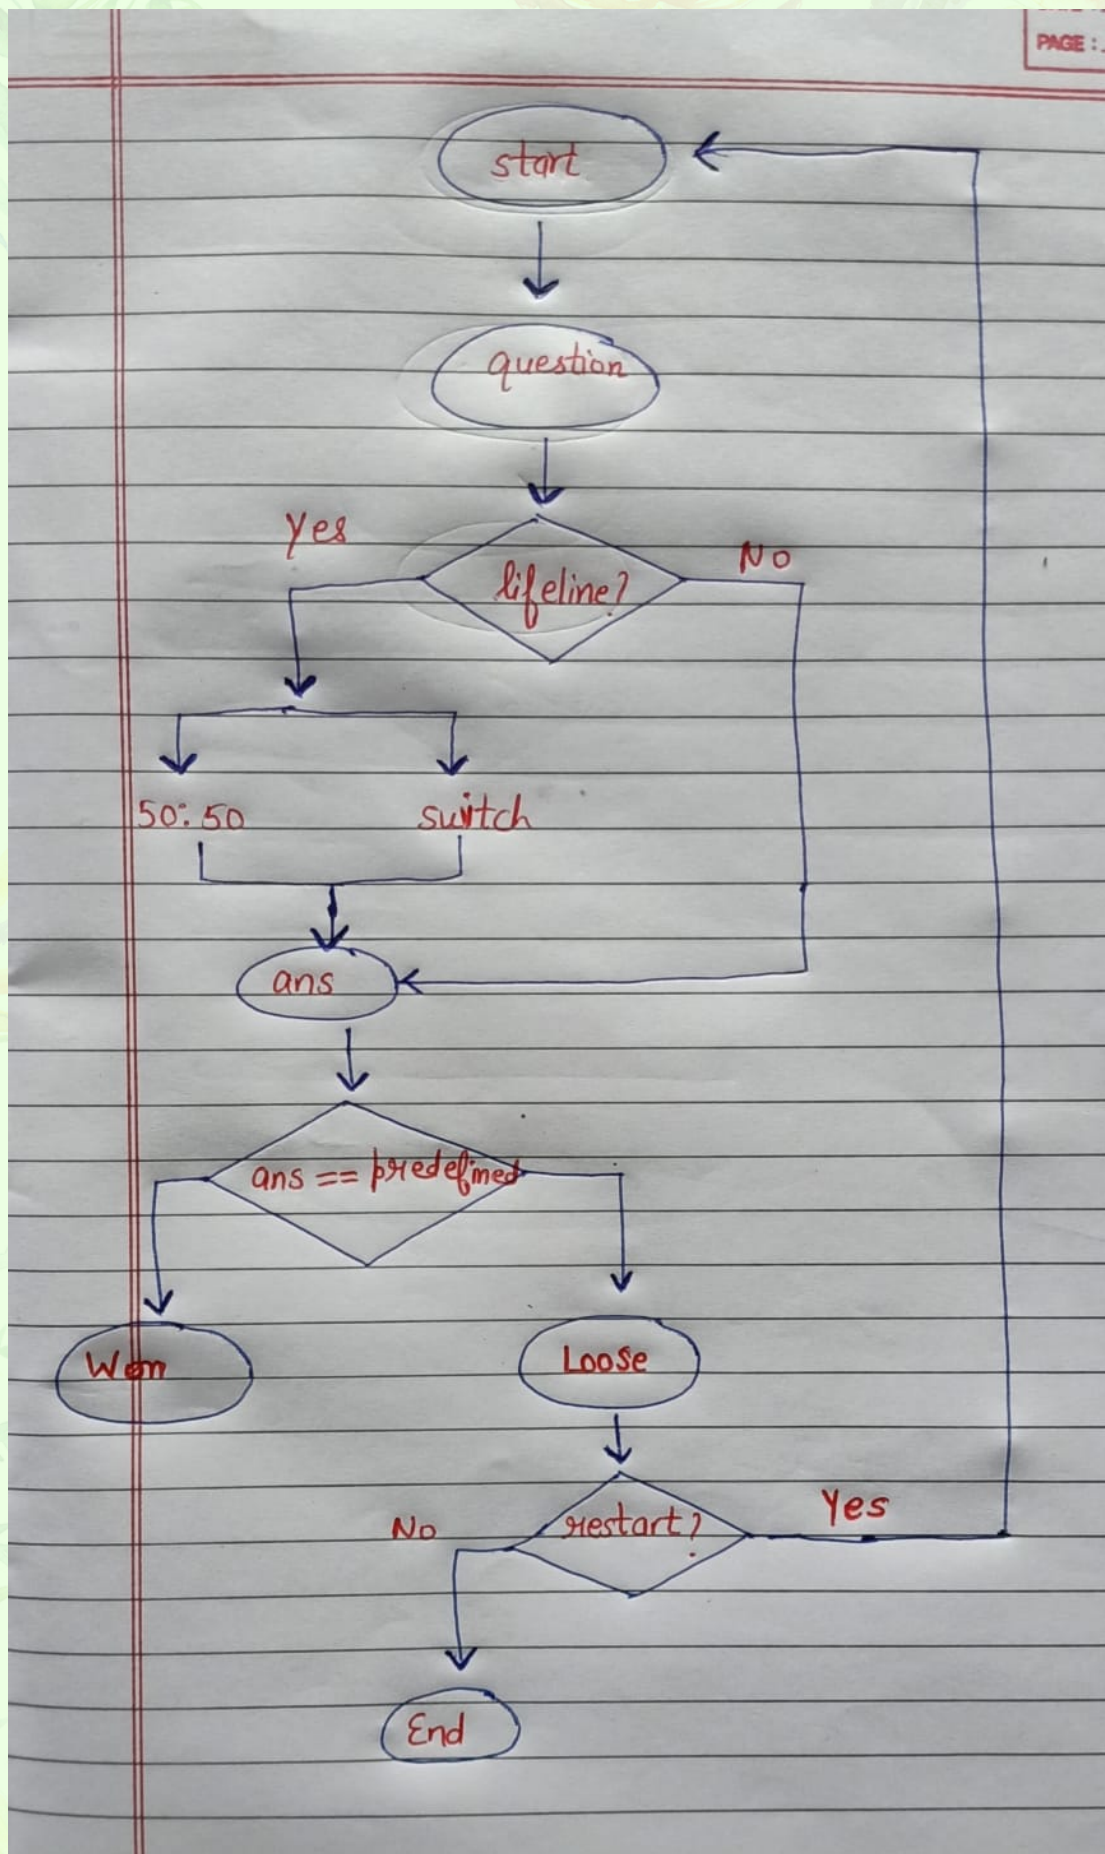 PAGE :
start
question
Yes
No
lifeline?
50:50
switch
ans
ans == predefined
Won
Loose
restart?
Yes
No
End